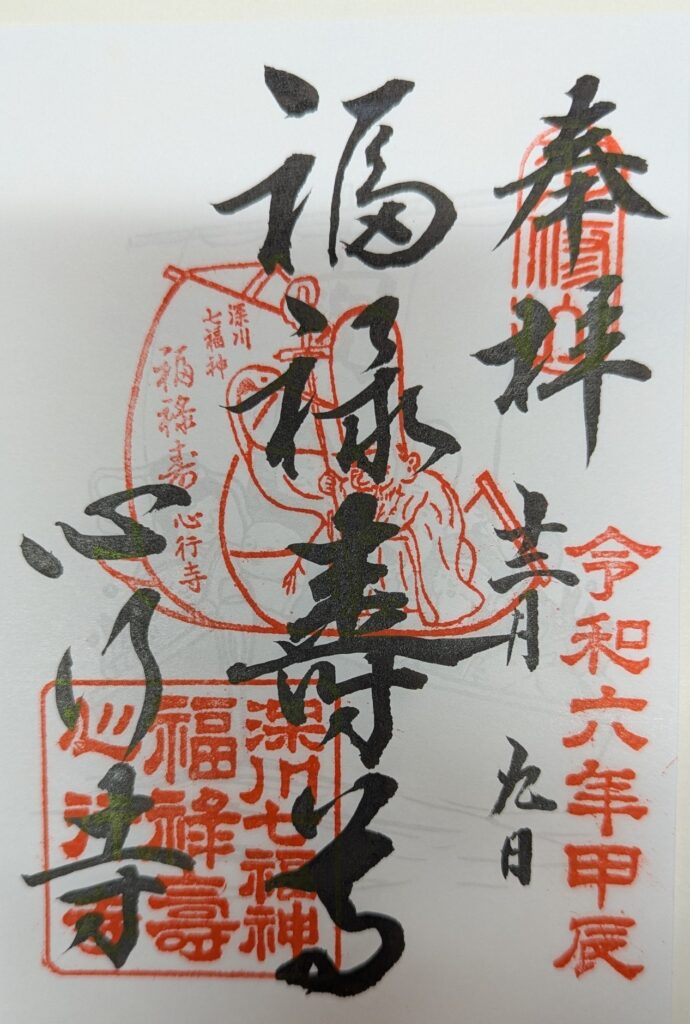 奉拝
十二月
九日
令和六年甲辰
福禄寿尊
深川
七福神
福禄寿
心行寺
心行寺
深川七福神
福禄壽
心行寺